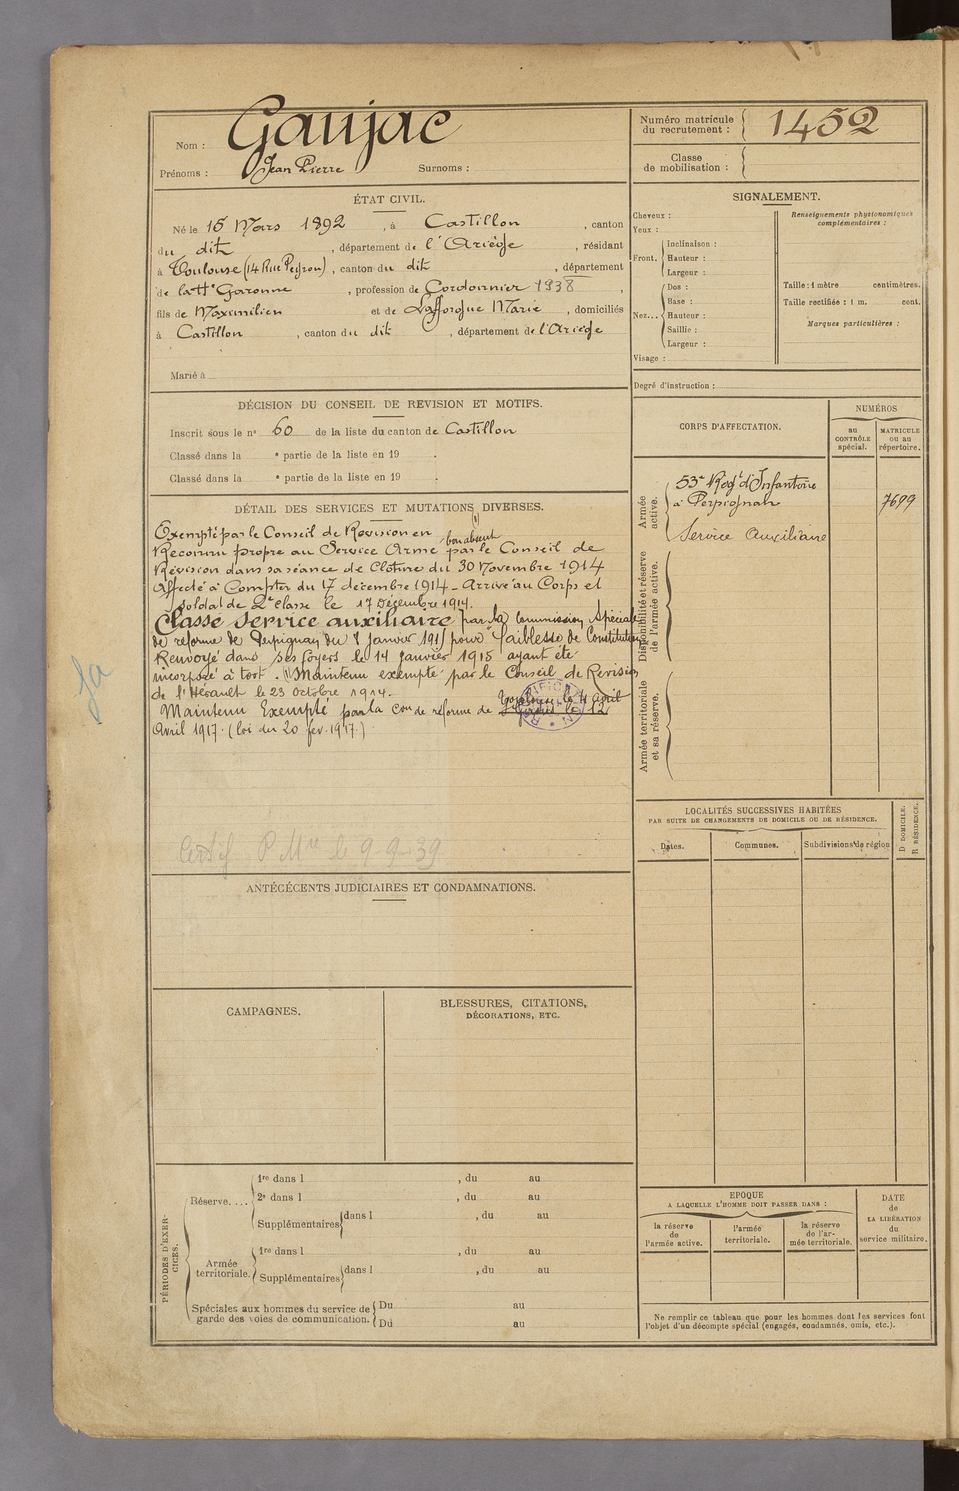 Nom : Gaujac
Prénoms : Jean Pierre Surnoms :
Numéro matricule du recrutement : 1452
Classe de mobilisation :
ÉTAT CIVIL.
Né le 15 Mars 1892, à Castillon, canton
du dit, département de l'Ariège, résidant
à Toulouse (14 Rue Peyrou), canton du dit, département
de la Hte Garonne, profession de Cordonnier 1938,
fils de Maximilien et de Lafforgue Marie, domiciliés
à Castillon, canton du dit, département de l'Ariège
Marié à
DÉCISION DU CONSEIL DE REVISION ET MOTIFS.
Inscrit sous le no 60 de la liste du canton de Castillon
Classé dans la e partie de la liste en 19 .
Classé dans la e partie de la liste en 19 .
DÉTAIL DES SERVICES ET MUTATIONS DIVERSES.
(1)
Exempté par le Conseil de Revision en
bon absent
Reconnu propre au Service Armé par le Conseil de
Révision dans sa séance de Clôture du 30 Novembre 1914
Affecté à Compter du 17 décembre 1914 - Arrivé au Corps et
soldat de 2e Classe le 17 Décembre 1914.
Classé service auxiliaire par la Commission Spéciale
de réforme de Perpignan du 8 janvier 1915 pour faiblesse de Constitution
Renvoyé dans ses foyers le 14 janvier 1915 ayant été
incorporé à tort. (1) Maintenu exempté par le Conseil de Revision
de l'Hérault le 23 octobre 1914.
Toulouse le 4 avril
Maintenu Exempté par la Con de réforme de le 12
Avril 1917. (loi du 20 fév. 1917.)
Certif P Mre le 9-9-39
ANTÉCÉCENTS JUDICIAIRES ET CONDAMNATIONS.
CAMPAGNES.
BLESSURES, CITATIONS,
DÉCORATIONS, ETC.
PÉRIODES D'EXER-
CICES.
Réserve....
1re dans l , du au
2e dans l , du au
Supplémentaires dans l , du au
Armée territoriale.
1re dans l , du au
Supplémentaires dans l , du au
Spéciales aux hommes du service de
garde des voies de communication.
Du au
Du au
SIGNALEMENT.
Cheveux :
Yeux :
Front.
Inclinaison :
Hauteur :
Largeur :
Nez...
Dos :
Base :
Hauteur :
Saillie :
Largeur :
Visage :
Renseignements physionomiques
complémentaires :
Taille : 1 mètre centimètres.
Taille rectifiée : 1 m. cent.
Marques particulières :
Degré d'instruction :
CORPS D'AFFECTATION.
NUMÉROS
au
CONTRÔLE
spécial.
MATRICULE
ou au
répertoire.
Armée
active.
53e Regt d'Infanterie
à Perpignan 7699
Service Auxiliaire
Disponibilité et réserve
de l'armée active.
Armée territoriale
et sa réserve.
LOCALITÉS SUCCESSIVES HABITÉES
PAR SUITE DE CHANGEMENTS DE DOMICILE OU DE RÉSIDENCE.
Dates.
Communes.
Subdivisions de région
D DOMICILE.
R RÉSIDENCE.
EPOQUE
A LAQUELLE L'HOMME DOIT PASSER DANS :
la réserve
de
l'armée active.
l'armée
territoriale.
la réserve
de l'ar-
mée territoriale.
DATE
de
LA LIBÉRATION
du
service militaire.
Ne remplir ce tableau que pour les hommes dont les services font
l'objet d'un décompte spécial (engagés, condamnés, omis, etc.).